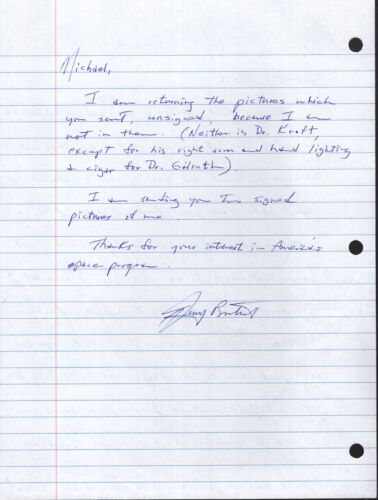 Michael,
I am returning the pictures which
you sent, unsigned, because I am
not in them. (Neither is Dr. Kraft,
except for his right arm and hand lighting
a cigar for Dr. Gilruth).
I am sending you two signed
pictures of me.
Thanks for your interest in America's
space program.
Jerry